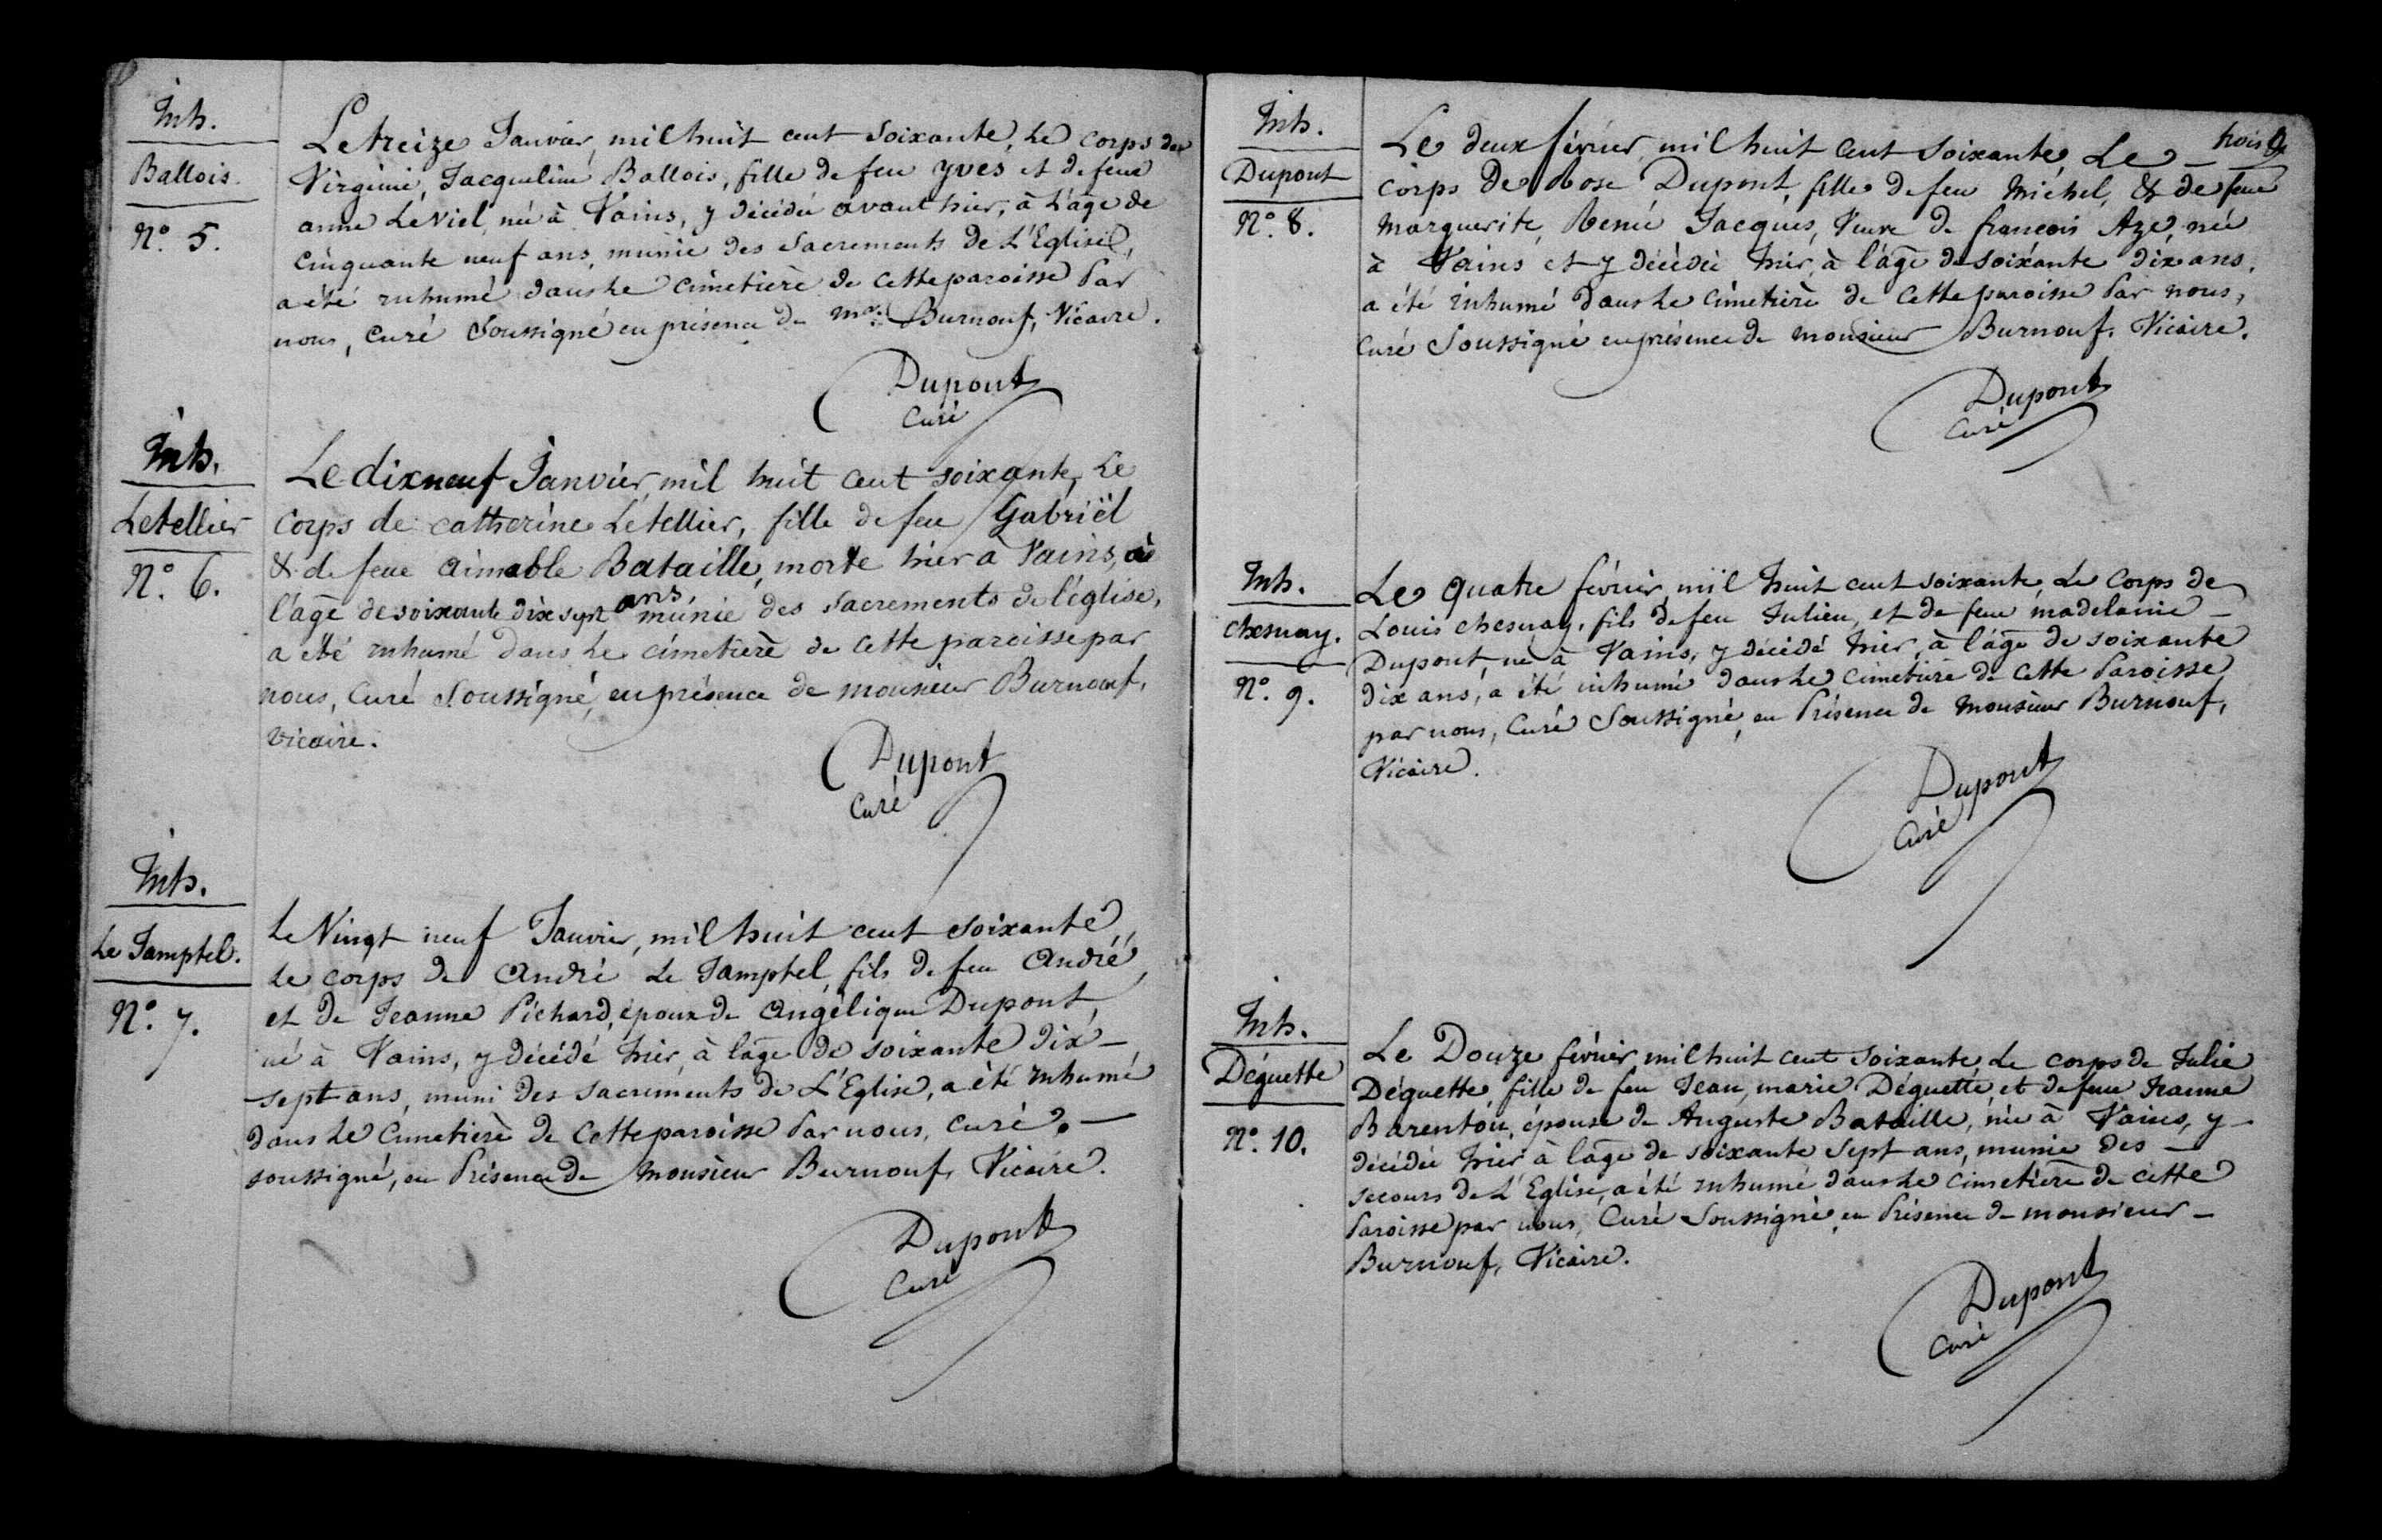 Inh.
Ballois.
N.º 5.
Le treize Janvier, mil huit cent soixante, le corps de
Virginie, Jacqueline Ballois, fille de feu Yves et de feue
anne Le Viel, née à Vains, y décédée avant hier, à l'âge de
cinquante neuf ans, munie des Sacrements de L'Eglise,
a été inhumé dans le cimetière de cette paroisse Par
nous, curé Soussigné en présence de Mr. Burnouf, Vicaire.
Dupont
Curé
Inh.
Letellier
N.º 6.
Le dix neuf Janvier, mil huit cent soixante, Le
Corps de catherine Letellier, fille de feu Gabriël
& de feue aimable Bataille, morte hier à Vains, à
l'âge de soixante dix sept ans munie des sacrements de l'église,
a été inhumé dans le cimetière de cette paroisse par
nous, Curé Soussigné, en présence de monsieur Burnouf,
vicaire.
Dupont
Curé
Inh.
Le Jamptel.
N.º 7.
Le Vingt neuf Janvier, mil huit cent soixante,
le corps de André Le Jamptel, fils de feu André,
et de Jeanne Pichard, époux de Angélique Dupont,
né à Vains, y décédé hier, à l'âge de soixante dix -
sept ans, muni des sacrements de L'Eglise, a été inhumé
dans le Cimetière de cette paroisse Par nous, curé. -
soussigné, en Présence de Monsieur Burnouf, Vicaire.
Dupont
Curé
trois
Inh.
Dupont
N.º 8.
Le deux février, mil huit cent soixante, Le -
corps de Rose Dupont, fille de feu Michel, & de feue
Marguerite, Renée Jacques, Veuve de françois Azé, née
à Vains et y décédée hier, à l'âge de soixante dix ans,
a été inhumé dans le cimetière de cette paroisse Par nous,
curé Soussigné en présence de monsieur Burnouf, Vicaire.
Dupont
Curé
Inh.
chesnay.
N.º 9.
Le quatre février, mil huit cent soixante, Le Corps de
Louis chesnay, fils de feu Julien, et de feue madelaine -
Dupont, né à Vains, y décédé hier, à l'âge de soixante
dix ans, a été inhumé dans le cimetière de cette Paroisse
par nous, Curé Soussigné, en Présence de Monsieur Burnouf,
Vicaire.
Dupont
Curé
Inh.
Déguette
N.º 10.
Le Douze février mil huit cent soixante, Le corps de Julie
Déguette, fille de feu Jean, marie Déguette, et de feue Jeanne
Barenton, épouse de Auguste Bataille, née à Vains, y -
décédée hier à l'âge de soixante sept ans, munie des -
secours de L'Eglise, a été inhumé dans le cimetière de cette
Paroisse par nous, Curé Soussigné, en Présence de monsieur -
Burnouf, Vicaire.
Dupont
Curé